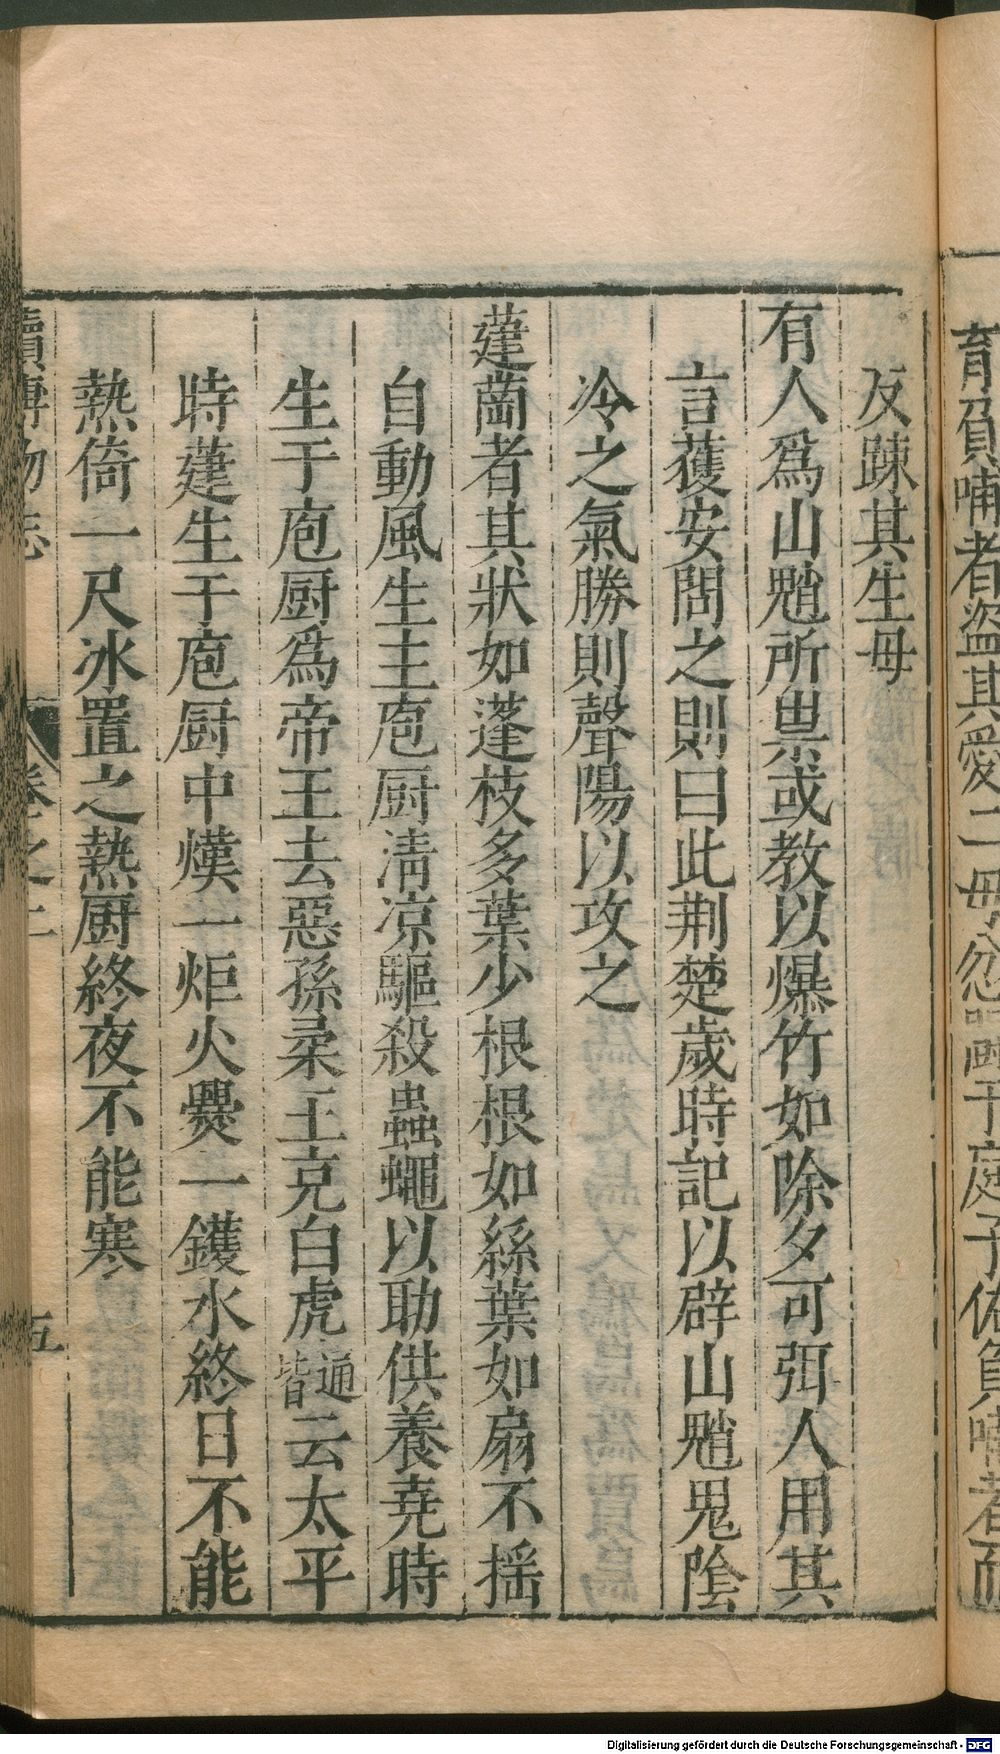 育負哺者盜其愛二母忽鬭于庭子佐負哺者而
反踈其生母
有人爲山魈所祟或教以爆竹如除夕可弭人用其
言獲安閻之則曰此荆楚歲時記以辟山魈鬼陰
冷之氣勝則聲陽以攻之
萐莆者其狀如蓬枝多葉少根根如絲葉如扇不揺
自動風生主庖厨清凉驅殺蟲蠅以助供養堯時
生于庖厨爲帝王去惡孫柔王克白虎通皆云太平
時萐生于庖厨中熯一炬火爨一鑊水終日不能
熱倚一尺冰置之熱厨終夜不能寒
續博物志 卷之二 五
Digitalisierung gefördert durch die Deutsche Forschungsgemeinschaft - DFG